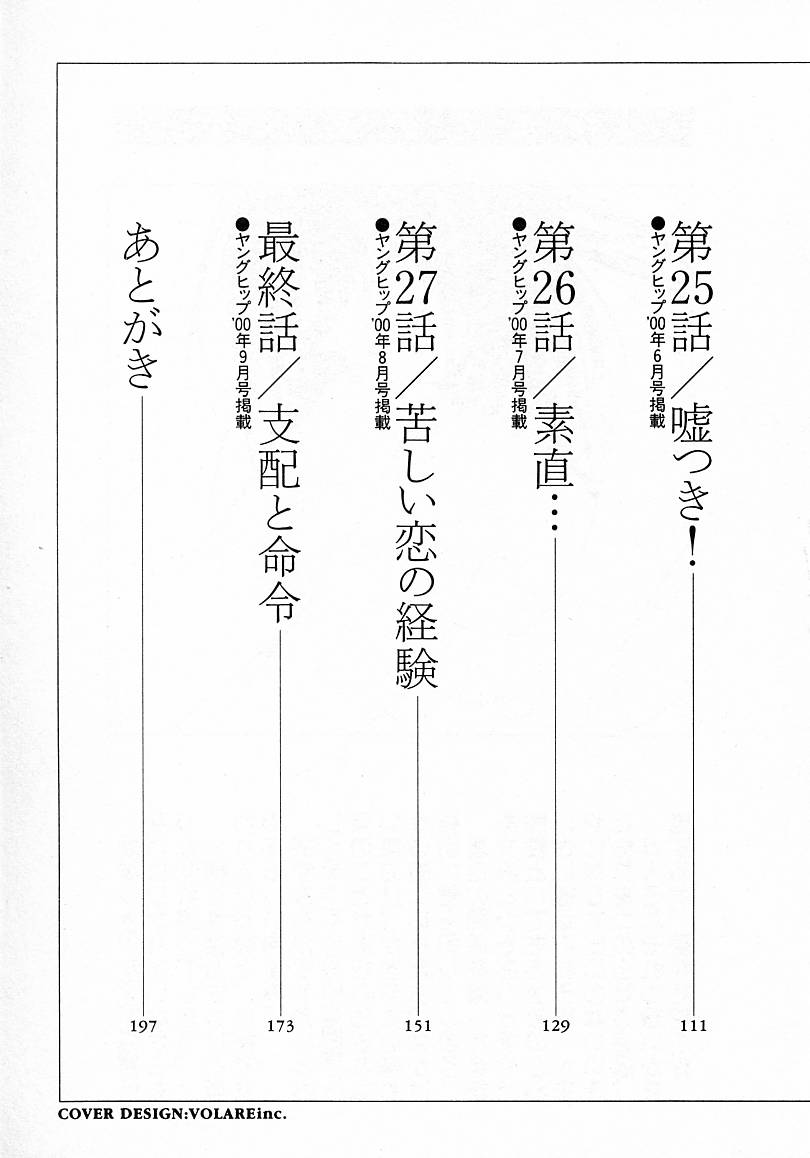 第25話／嘘つき！
●ヤングヒップ'00年6月号掲載
111
第26話／素直…
●ヤングヒップ'00年7月号掲載
129
第27話／苦しい恋の経験
●ヤングヒップ'00年8月号掲載
151
最終話／支配と命令
●ヤングヒップ'00年9月号掲載
173
あとがき
197
COVER DESIGN:VOLAREinc.